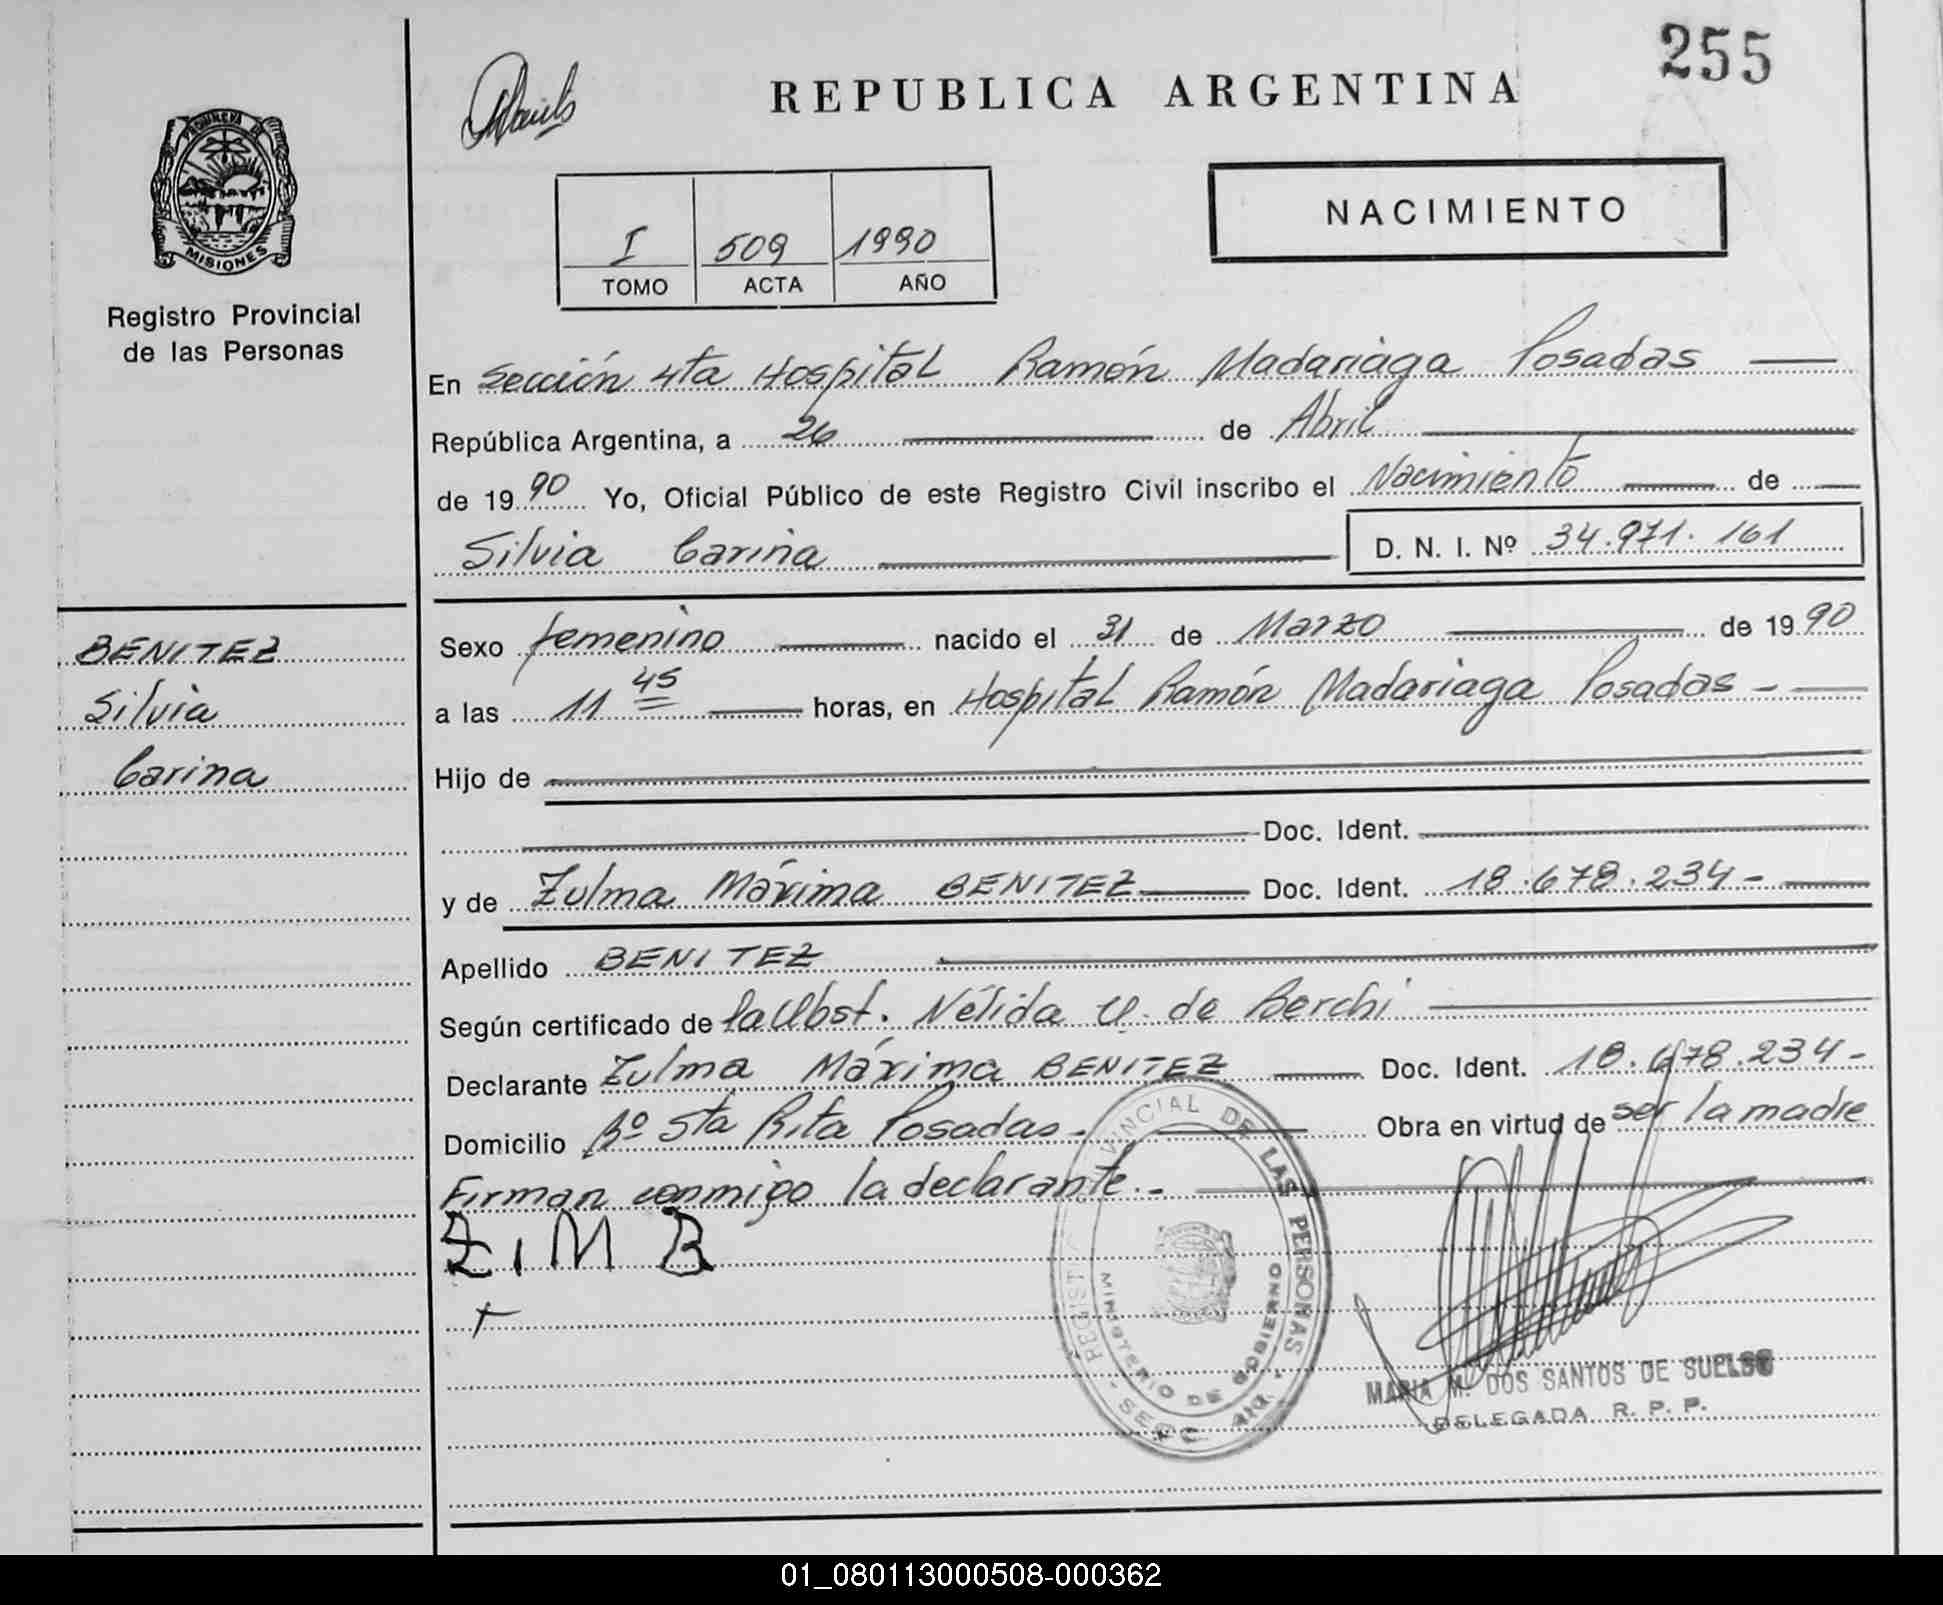 255
REPUBLICA ARGENTINA
PROVINCIA DE
MISIONES
Registro Provincial
de las Personas
I 509 1990
TOMO ACTA AÑO
NACIMIENTO
En Sección 4ta Hospital Ramón Madariaga Posadas
República Argentina, a 26 de Abril
de 1990 Yo, Oficial Público de este Registro Civil inscribo el Nacimiento de
Silvia Carina D. N. I. Nº 34.971.161
BENITEZ
Silvia
Carina
Sexo femenino nacido el 31 de Marzo de 1990
a las 11 45 horas, en Hospital Ramón Madariaga Posadas -
Hijo de
Doc. Ident.
y de Zulma Máxima BENITEZ Doc. Ident. 18.678.234-
Apellido BENITEZ
Según certificado de la Obst. Nélida U. de Berchi
Declarante Zulma Máxima BENITEZ Doc. Ident. 18.678.234-
Domicilio Bº Sta Rita Posadas.- Obra en virtud de ser la madre
Firman conmigo la declarante.-
Z M B
REGISTRO PROVINCIAL DE LAS PERSONAS
MINISTERIO DE GOBIERNO
MARIA M. DOS SANTOS DE
DELEGADA R. P. P.
01_080113000508-000362